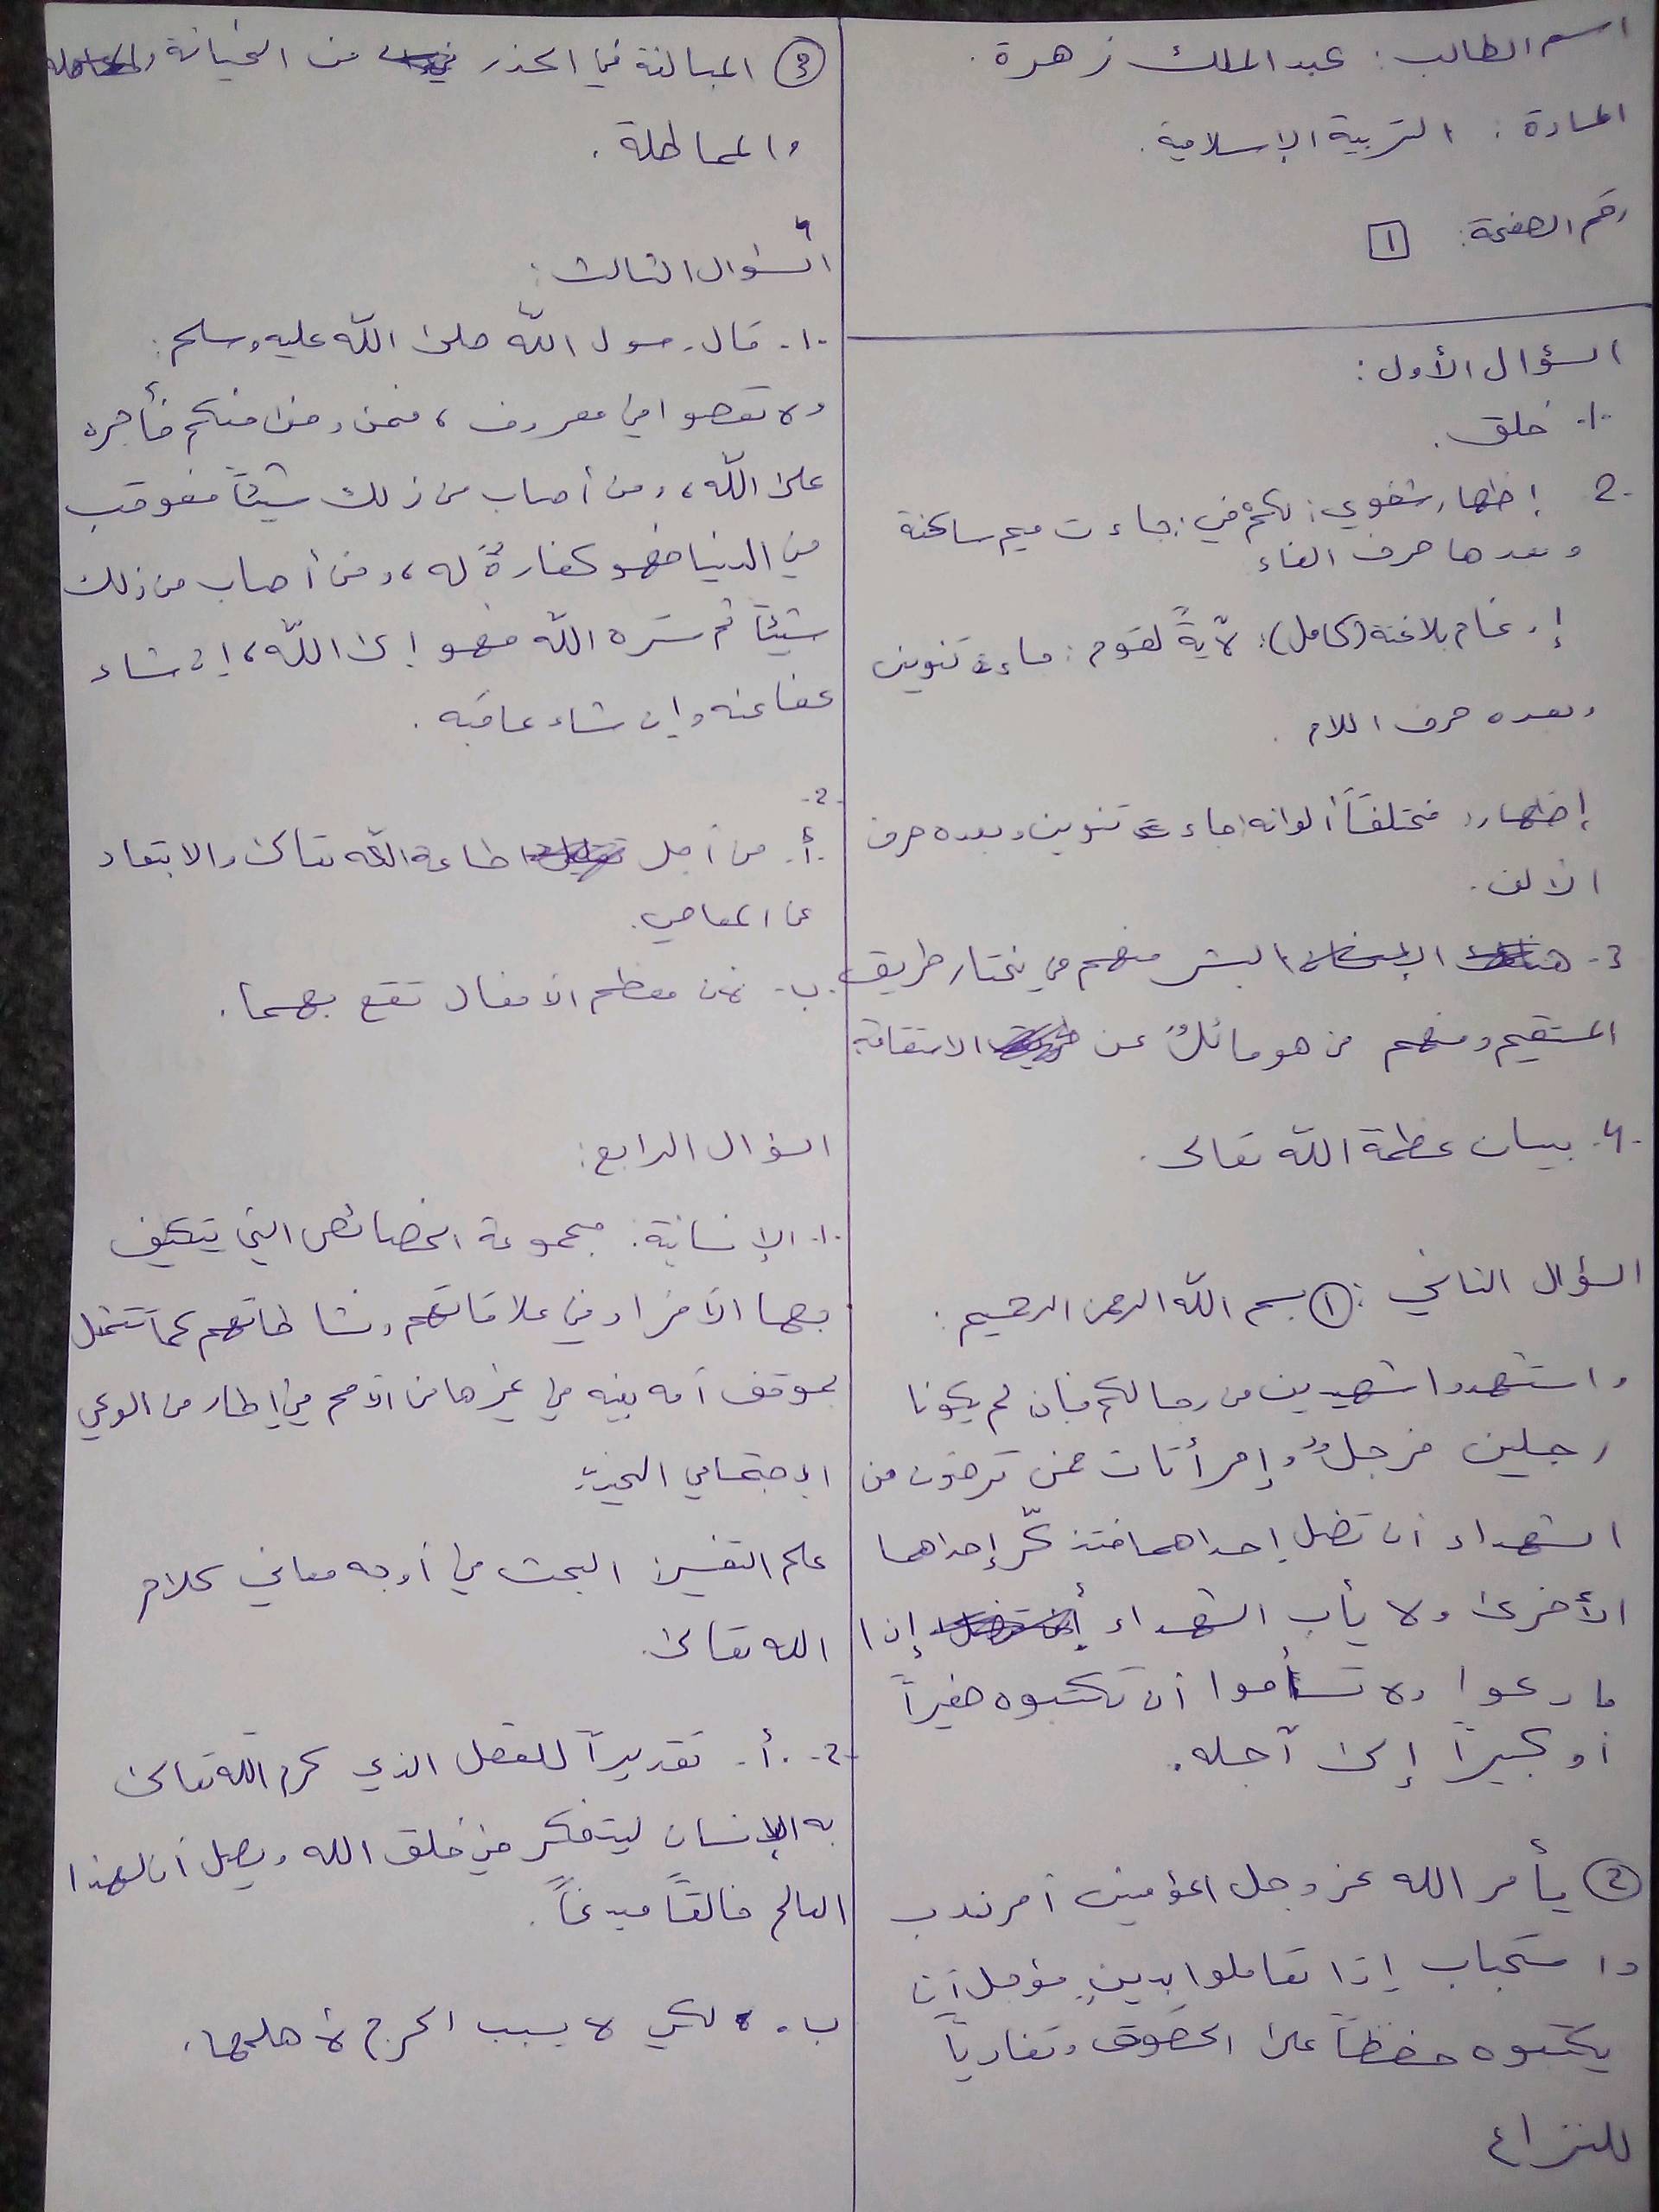 اسم الطالب: عبد الملك زهرة.
المادة: التربية الإسلامية.
رقم الصفحة: 1
السؤال الأول:
1- خلق.
2- إظهار شفوي: لكم في: جاءت ميم ساكنة
وبعدها حرف الفاء
إدغام بلا غنة (كامل): لآيةً لقوم: جاءت تنوين
وبعده حرف اللام.
إظهار: مختلفاً ألوانه: جاء تنوين وبعده حرف
الألف.
3- البشر منهم من يختار طريق
المستقيم ومنهم من هو مائلٌ عن الاستقامة
4- بيان عظمة الله تعالى.
السؤال الثاني: ① بسم الله الرحمن الرحيم:
واستشهدوا شهيدين من رجالكم فإن لم يكونا
رجلين فرجلٌ وإمرأتات ممن ترضون من
الشهداء أن تضل إحداهما فتذكّر إحداهما
الأخرى ولا يأب الشهداء إذا
ما دعوا ولا تسأموا أن تكتبوه صغيراً
أو كبيراً إلى آجله.
② يأمر الله عز وجل المؤمنين أمر ندب
واستحباب إذا تعاملوا بدينٍ مؤجل أن
يكتبوه حفظاً على الحقوق وتفادياً
للنزاع
③ المبالغة في الحذر من الخيانة
والمماطلة.
السؤال الثالث:
1- قال رسول الله صلى الله عليه وسلم:
ولا تعصوا في معروف، فمن وفى منكم فأجره
على الله، ومن أصاب من ذلك شيئاً فعوقب
في الدنيا فهو كفارةٌ له، ومن أصاب من ذلك
شيئاً ثم ستره الله فهو إلى الله، إن شاء
عفا عنه وإن شاء عاقبه.
2-
أ- من أجل طاعة الله تعالى والابتعاد
عن المعاصي.
ب- لأن معظم الأفعال تقع بهما.
السؤال الرابع:
1- الإنسانية: مجموعة الخصائص التي يتكيف
بها الأفراد في علاقاتهم ونشاطاتهم كما تتمثل
بموقف أمه بينه في غيرها من الأمم في إطار من الوعي
الاجتماعي
علم التفسير: البحث في أوجه معاني كلام
الله تعالى.
2- أ- تقديراً للعقل الذي كرم الله تعالى
به الإنسان ليتفكر في خلق الله ويصل أن لهذا
العالم خالقاً مبدعاً.
ب- لكي لا يسبب الحرج لأهلها.